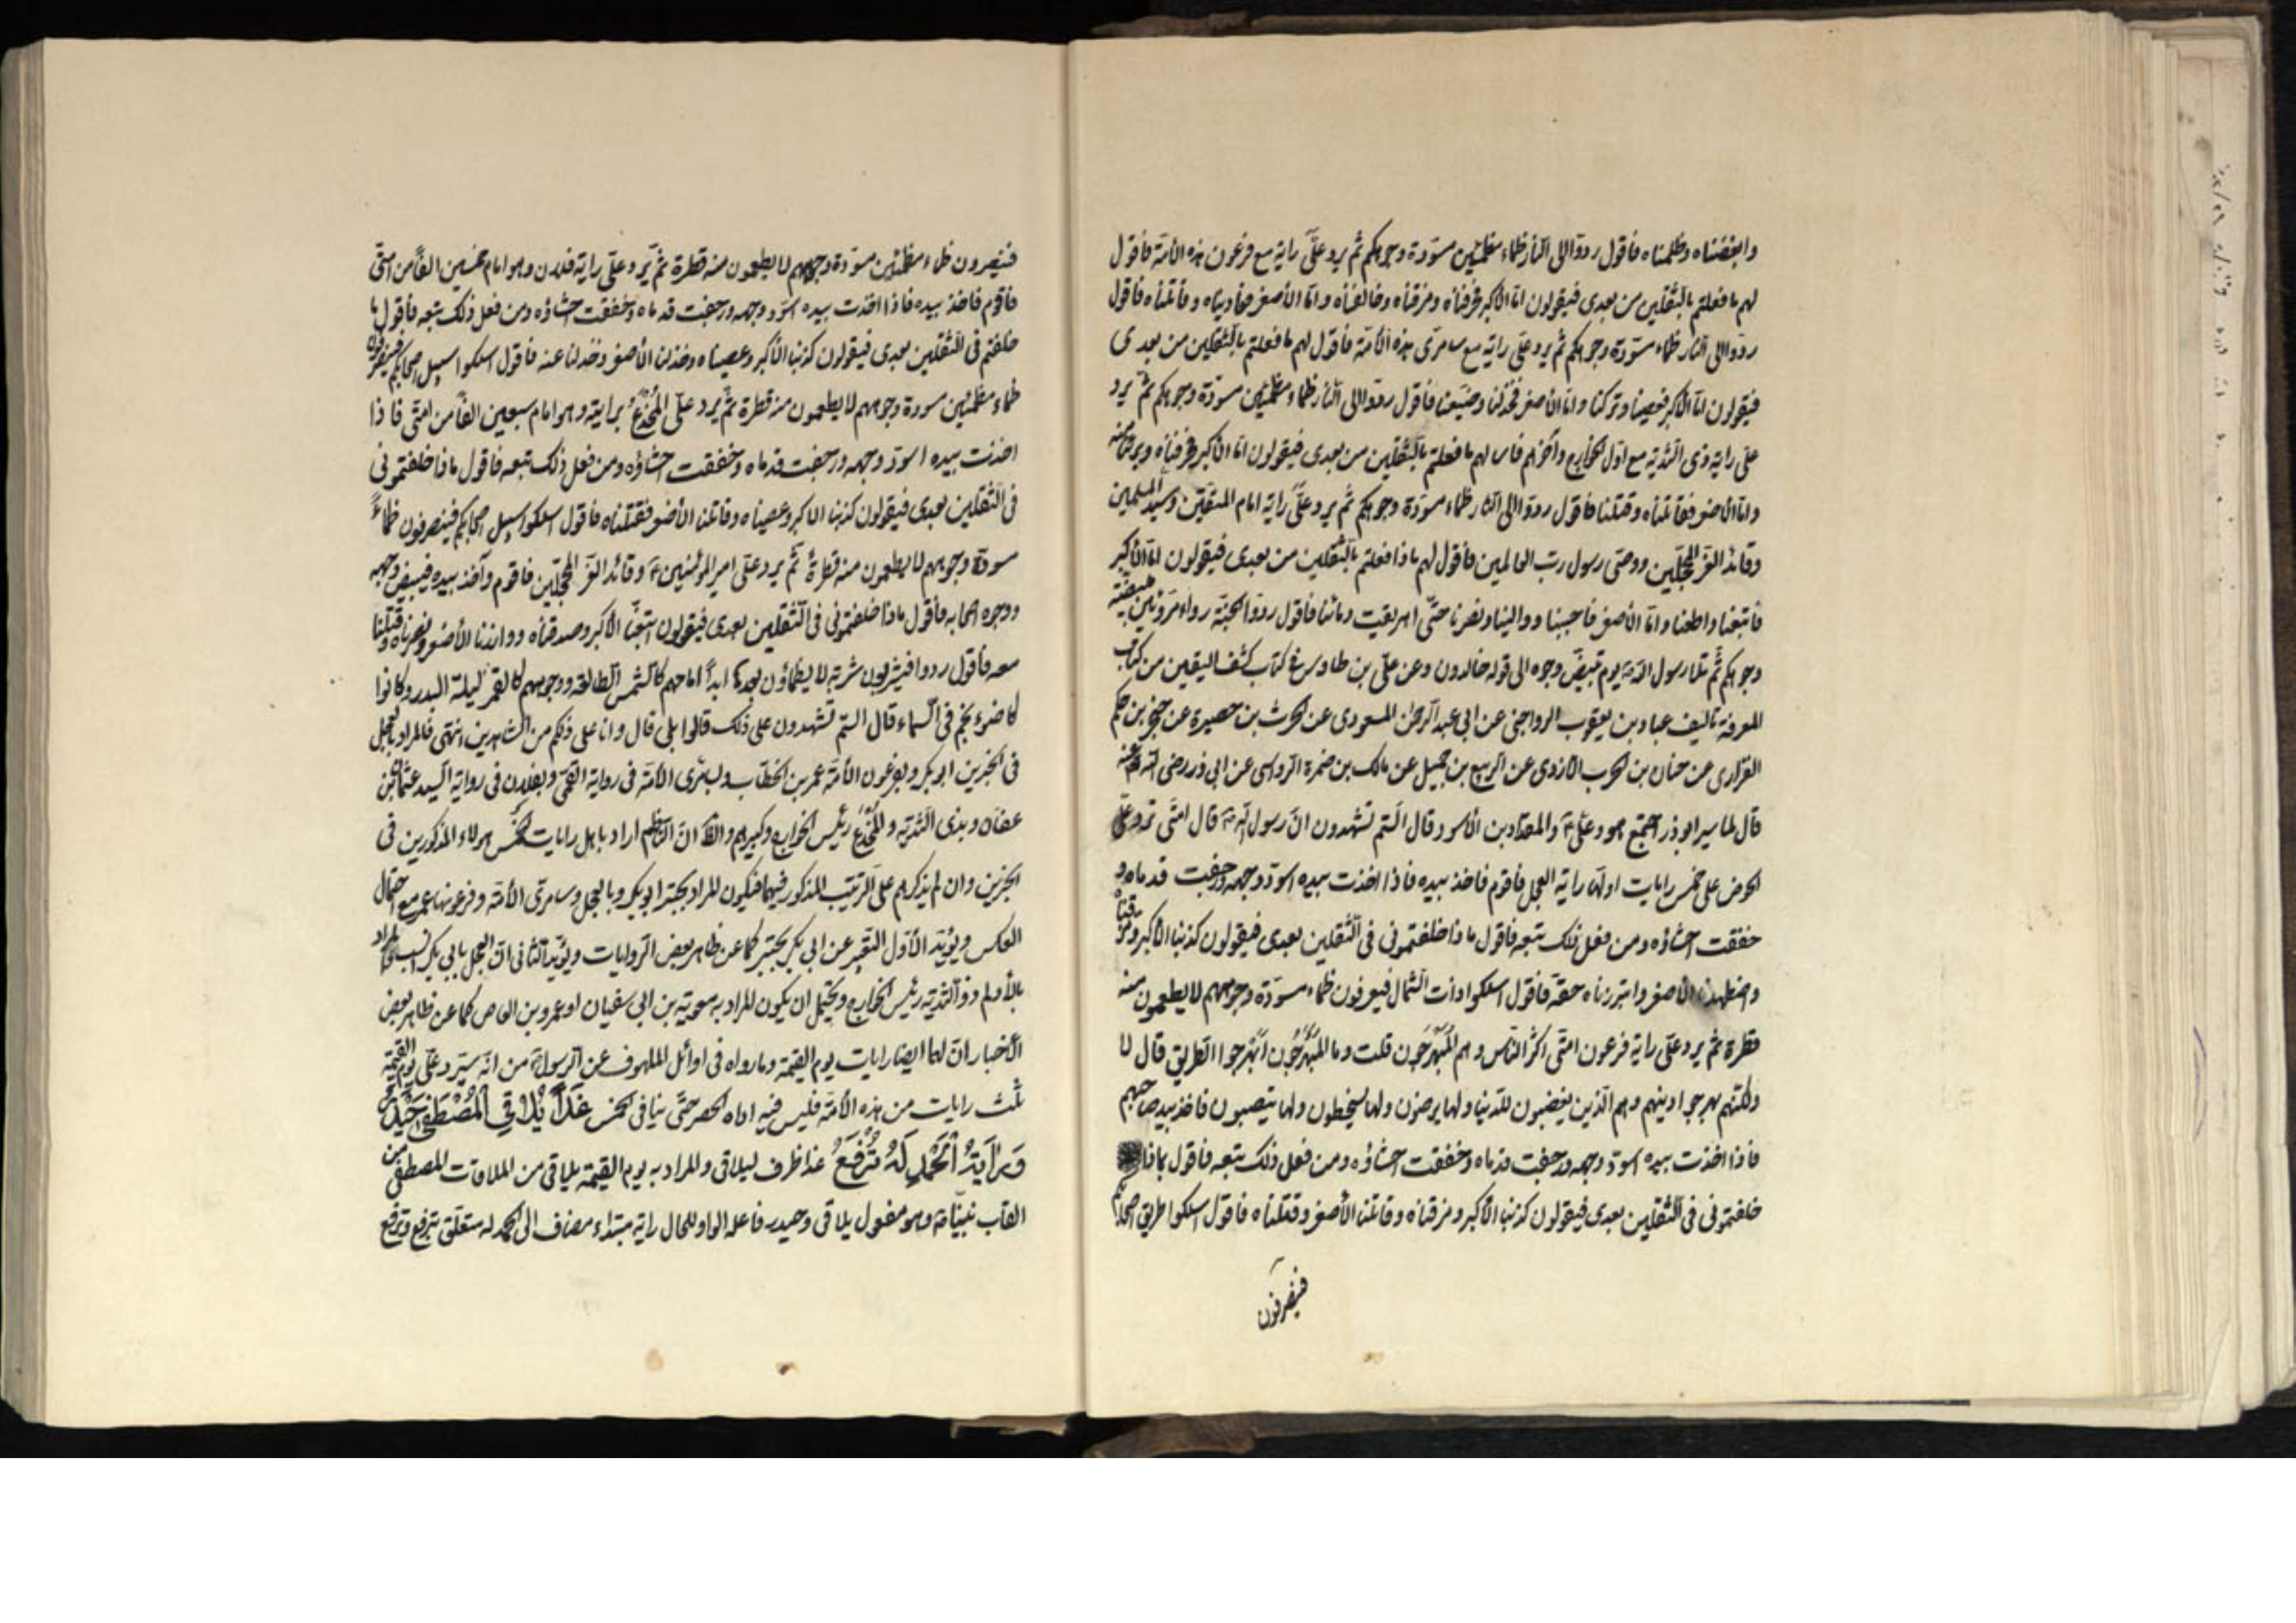 وابغضناه وظلمناه فاقول ردوا الى النار ظماء مظمئين مسودة وجوهكم ثم يرد علىّ راية مع فرعون هذه الأمة فاقول
لهم ما فعلتم بالثقلين من بعدى فيقولون امّا الاكبر فحرفناه ومزقناه وخالفناه وامّا الأصغر فعاديناه وقاتلناه فاقول
ردوا الى النار ظماء مسودة وجوهكم ثم يرد علىّ راية مع سامرى هذه الأمة فاقول لهم ما فعلتم بالثقلين من بعدى
فيقولون امّا الأكبر فعصينا وتركنا وامّا الأصغر فخذلنا وضيعنا فاقول ردوا الى النار ظماء مظمئين مسودة وجوهكم ثم يرد
علىّ راية ذى الثدية مع اول الخوارج وآخرهم فاسئلهم ما فعلتم بالثقلين من بعدى فيقولون امّا الأكبر فمزقناه وبرئنا منه
وامّا الأصغر فقاتلناه وقتلنا فاقول ردوا الى النار ظماء مسودة وجوهكم ثم يرد علىّ راية امام المتقين وسيد المسلمين
وقائد الغر المحجلين ووصى رسول رب العالمين فاقول لهم ماذا فعلتم بالثقلين من بعدى فيقولون امّا الأكبر
فاتبعنا واطعنا وامّا الأصغر فاحببنا ووالينا ونصرنا حتى اهريقت دمائنا فاقول ردوا الجنة رواء مرويين مبيضة
وجوهكم ثم تلا رسول الله يوم تبيض وجوه الى قوله خالدون وعن على بن طاوس فى كتاب كشف اليقين من كتاب
المعرفة تاليف عباد بن يعقوب الرواجنى عن ابى عبد الرحمن المسعودى عن الحرث بن حصيرة عن صخر بن حكم
الفزارى عن حنان بن الحرب الازدى عن الربيع بن جميل عن مالك بن ضمرة الرواسى عن ابى ذر رضى الله عنه
قال لما سير ابو ذر اجتمع هو وعلى والمقداد بن الأسود قال الستم تشهدون انّ رسول الله قال امتى ترد علىّ
الحوض على خمس رايات اولها راية العجل فاقوم فاخذ بيده فاذا اخذت بيده اسود وجهه ورجفت قدماه و
خفقت احشاؤه ومن فعل ذلك تبعه فاقول ماذا خلفتمونى فى الثقلين بعدى فيقولون كذبنا الأكبر ومزقناه
واضطهدنا الأصغر وابتززناه حقه فاقول اسلكوا ذات الشمال فيصرفون ظماء مسودة وجوههم لا يطعمون منه
قطرة ثم يرد علىّ راية فرعون امتى اكثر الناس وهم المبهرجون قلت وما المبهرجون ابهرجوا الطريق قال لا
ولكنهم بهرجوا دينهم وهم الذين يغضبون للدنيا ولها يرضون ولها يسخطون ولها ينصبون فاخذ بيد صاحبهم
فاذا اخذت بيده اسود وجهه ورجفت قدماه وخفقت احشاؤه ومن فعل ذلك تبعه فاقول ماذا
خلفتمونى فى الثقلين بعدى فيقولون كذبنا الأكبر ومزقناه وقاتلنا الأصغر وقتلناه فاقول اسلكوا طريق اصحابكم
فينصرفون
فينصرفون ظماء مظمئين مسودة وجوههم لا يطعمون منه قطرة ثم يرد علىّ راية فلان وهو امام خمسين الفا من امتى
فاقوم فاخذ بيده فاذا اخذت بيده اسود وجهه ورجفت قدماه وخفقت احشاؤه ومن فعل ذلك تبعه فاقول ما
خلفتم فى الثقلين بعدى فيقولون كذبنا الأكبر وعصيناه وخذلنا الأصغر وخذلنا عنه فاقول اسلكوا سبيل اصحابكم فينصرفون
ظماء مظمئين مسودة وجوههم لا يطعمون منه قطرة ثم يرد علىّ المخدّع برايته وهو امام سبعين الفا من امتى فاذا
اخذت بيده اسود وجهه ورجفت قدماه وخفقت احشاؤه ومن فعل ذلك تبعه فاقول ماذا خلفتمونى
فى الثقلين بعدى فيقولون كذبنا الأكبر وعصيناه وقاتلنا الأصغر فقتلناه فاقول اسلكوا سبيل اصحابكم فينصرفون ظماءً
مسودة وجوههم لا يطعمون منه قطرة ثم يرد علىّ امير المؤمنين وقائد الغر المحجلين فاقوم وآخذ بيده فيبيض وجهه
ووجوه اصحابه فاقول ماذا خلفتمونى فى الثقلين بعدى فيقولون اتبعنا الأكبر وصدقناه ووازرنا الأصغر ونصرناه وقتلنا
معه فاقول ردوا فيشربون شربة لا يظمأون بعدها ابداً امامهم كالشمس الطالعة ووجوههم كالقمر ليلة البدر وكانوا
كاضوء نجم فى السماء قال الستم تشهدون على ذلك قالوا بلى قال وانا على ذلكم من الشاهدين انتهى فالمراد بالعجل
فى الخبرين ابو بكر وبفرعون الأمة عمر بن الخطاب وبسامرى الأمة فى رواية القمى وبفلان فى رواية السيد عثمان بن
عفان وبذى الثدية والمخدع رئيس الخوارج وكبيرهم والظ انّ الناظم اراد باهل رايات الخمس هولاء المذكورين فى
الخبرين وان لم يذكرهم على الترتيب المذكور فيهما فيكون المراد بحبتر ابو بكر وبالعجل وسامرى الأمة وفرعونها عمر مع احتمال
العكس ويؤيد الأول التعبير عن ابى بكر بحبتر كما عن ظاهر بعض الروايات ويؤيد الثانى انّ العجل بابى بكر انسب المراد
بالأدلم ذو الثدية رئيس الخوارج ويحتمل ان يكون المراد به معوية بن ابى سفيان او عمرو بن العاص كما عن ظاهر بعض
الأخبار انّ لهما ايضا رايات يوم القيمة وما رواه فى اوائل الملهوف عن الرسول من انّه سترد علىّ يوم القيمة
ثلث رايات من هذه الأمة فليس فيه اداة الحصر حتى ينافى الخمس غَداً يُلاقِى المُصْطَفى حَيْدَرٌ
وَرايَةُ الحَمْدِ لَهُ تُرْفَعُ غدا ظرف ليلاقى والمراد به يوم القيمة يلاقى من الملاقات المصطفى من
القاب نبينا وهو مفعول يلاقى وحيدر فاعله الواو للحال راية مبتداء مضاف الى الحمد له متعلق بترفع وترفع